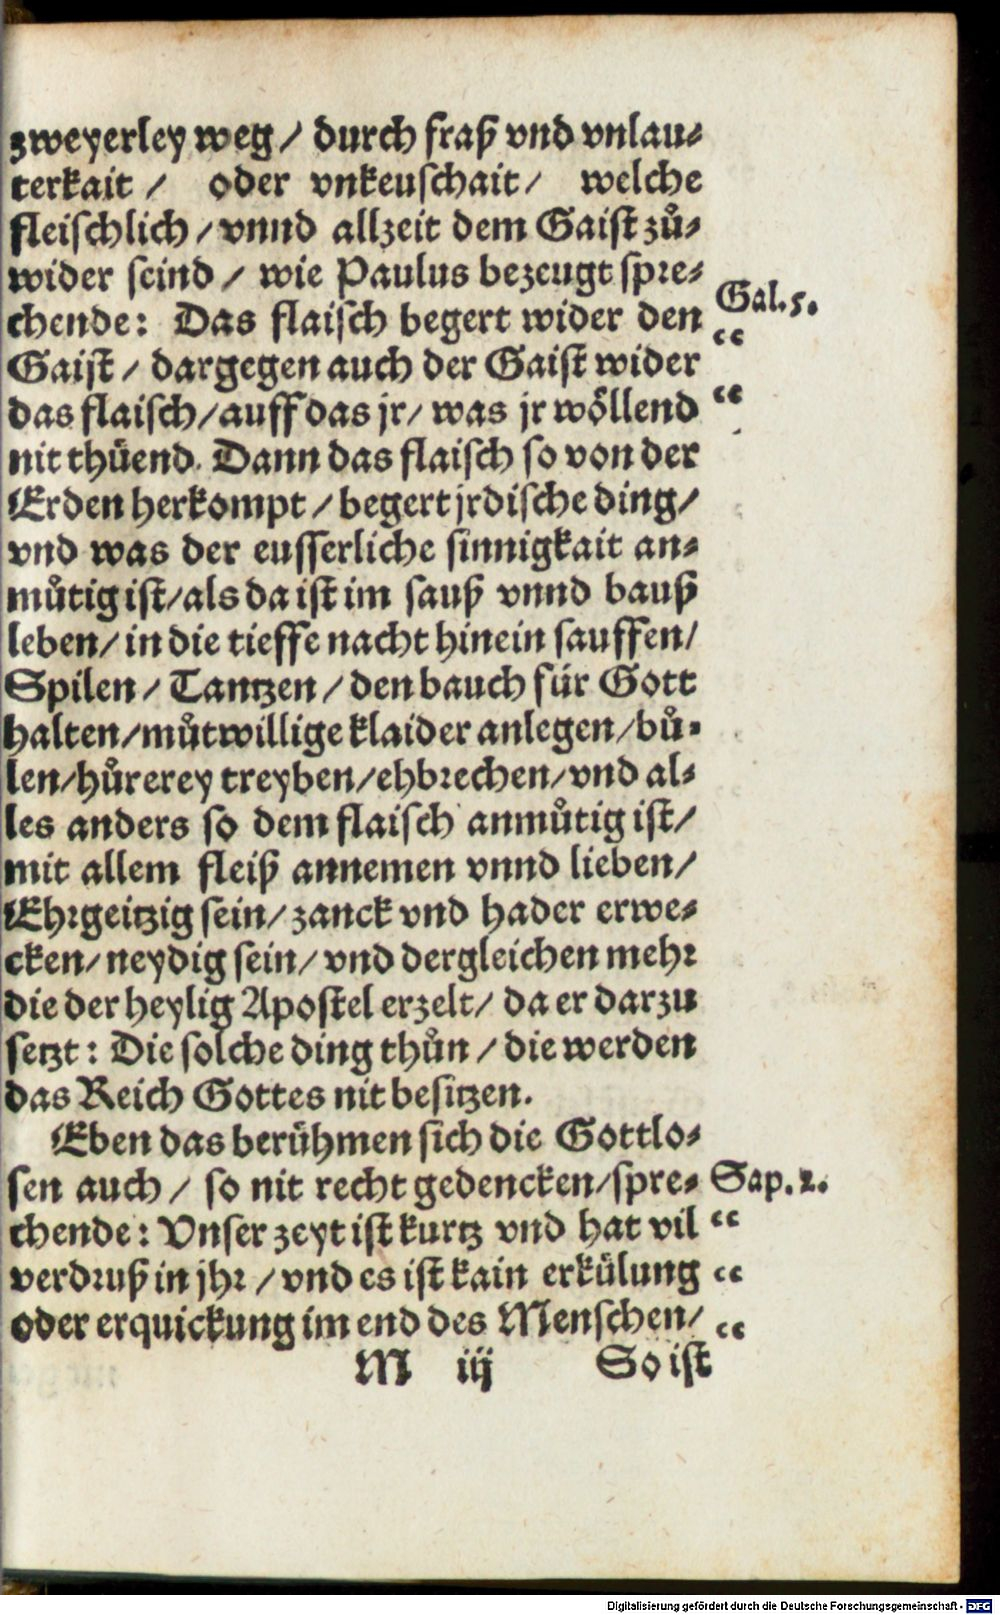 zweyerley weg / durch fraß vnd vnlau⸗
terkait / oder vnkeuschait / welche
fleischlich / vnnd allzeit dem Gaist zů⸗
wider seind / wie Paulus bezeugt spre⸗
chende: Das flaisch begert wider den
Gal. 5.
“
Gaist / dargegen auch der Gaist wider
das flaisch / auff das jr / was jr wöllend “
nit thüend. Dann das flaisch so von der
Erden herkompt / begert jrdische ding /
vnd was der eusserliche sinnigkait an⸗
můtig ist / als da ist im sauß vnnd bauß
leben / in die tieffe nacht hinein sauffen /
Spilen / Tantzen / den bauch für Gott
halten / můtwillige klaider anlegen / bů⸗
len / hůrerey treyben / ehbrechen / vnd al⸗
les anders so dem flaisch anmůtig ist /
mit allem fleiß annemen vnnd lieben /
Ehrgeitzig sein / zanck vnd hader erwe⸗
cken / neydig sein / vnd dergleichen mehr
die der heylig Apostel erzelt / da er darzu
setzt: Die solche ding thůn / die werden
das Reich Gottes nit besitzen.
Eben das berühmen sich die Gottlo⸗
sen auch / so nit recht gedencken / spre⸗ Sap. 2.
chende: Vnser zeyt ist kurtz vnd hat vil “
verdruß in jhr / vnd es ist kain erkülung “
oder erquickung im end des Menschen / “
M iij So ist
Digitalisierung gefördert durch die Deutsche Forschungsgemeinschaft - DFG